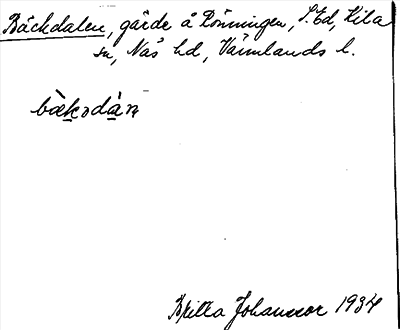 Bäckdalen, gärde å Rönningen, S. Ed, Kila
sn, Näs hd, Värmlands l.
bàkodàn
Britta Johansson 1934